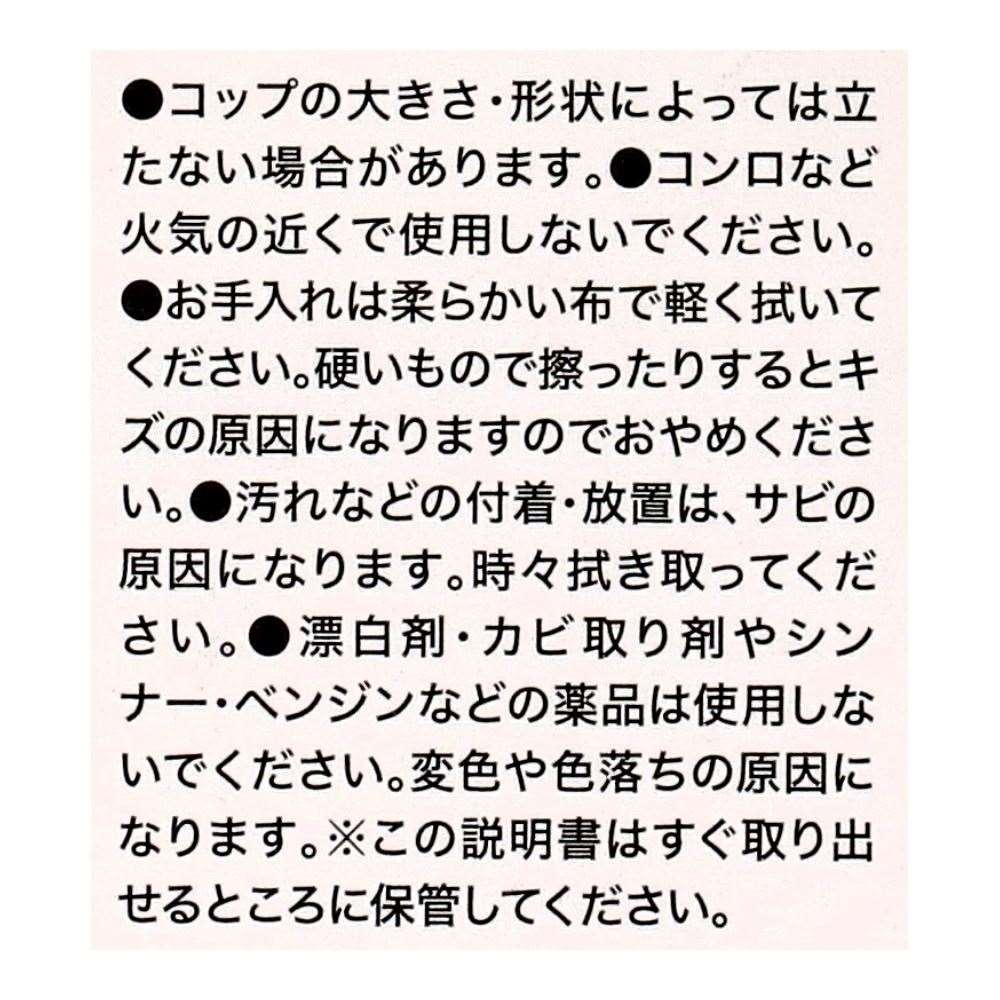 ●コップの大きさ・形状によっては立
たない場合があります。●コンロなど
火気の近くで使用しないでください。
●お手入れは柔らかい布で軽く拭いて
ください。硬いもので擦ったりするとキ
ズの原因になりますのでおやめくださ
い。●汚れなどの付着・放置は、サビの
原因になります。時々拭き取ってくだ
さい。●漂白剤・カビ取り剤やシン
ナー・ベンジンなどの薬品は使用しな
いでください。変色や色落ちの原因に
なります。※この説明書はすぐ取り出
せるところに保管してください。